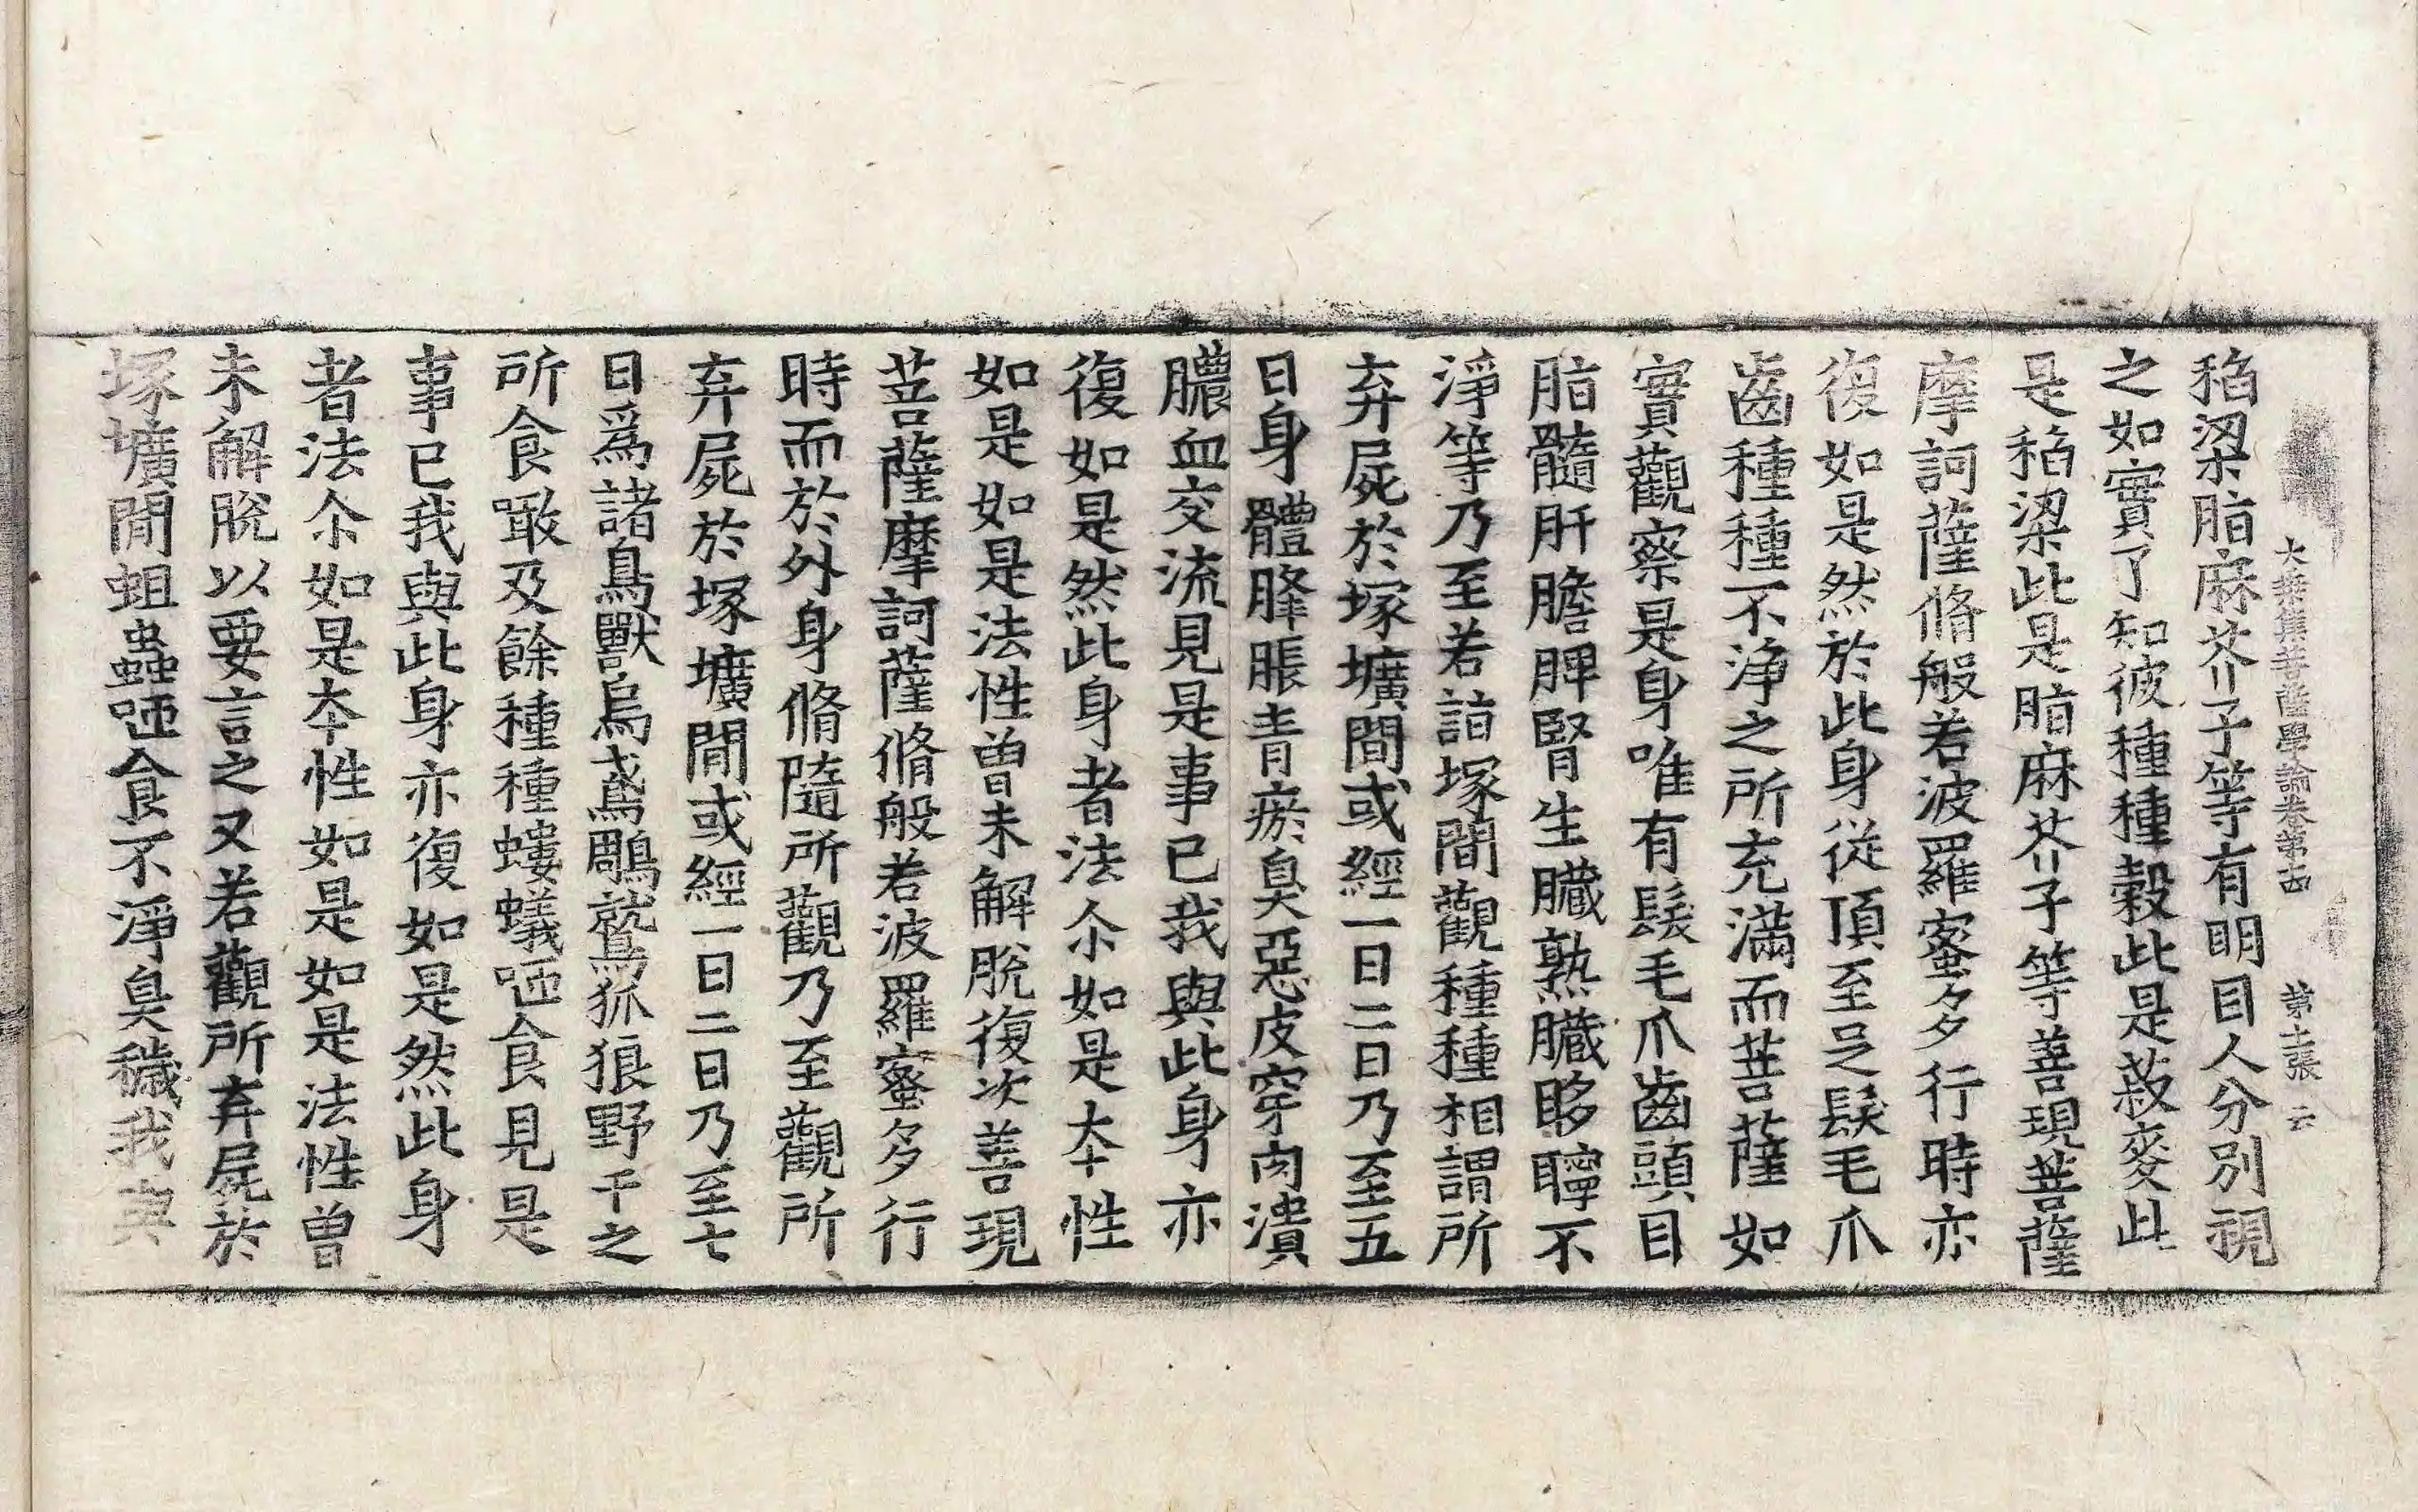 大乘集菩薩學論卷第十四 第十二張 云
稻梁脂麻芥子等有明目人分別視
之如實了知彼種種穀此是菽麥此
是稻梁此是脂麻芥子等善現菩薩
摩訶薩脩般若波羅蜜多行時亦
復如是然於此身從頂至足髮毛爪
齒種種不淨之所充滿而菩薩如
實觀察是身唯有髮毛爪齒頭目
脂髓肝膽脾腎生臟熟臟眵聹不
淨等乃至若詣塚間觀種種相謂所
弃屍於塚壙間或經一日二日乃至五
日身體膖脹青瘀臭惡皮穿肉潰
膿血交流見是事已我與此身亦
復如是然此身者法尒如是本性
如是如是法性曾未解脫復次善現
菩薩摩訶薩脩般若波羅蜜多行
時而於外身脩隨所觀乃至觀所
弃屍於塚壙間或經一日二日乃至七
日爲諸鳥獸烏鳶鵰鷲狐狼野干之
所食噉及餘種種螻蟻咂食見是
事已我與此身亦復如是然此身
者法尒如是本性如是如是法性曾
未解脫以要言之又若觀所弃屍於
塚壙間蛆蟲咂食不淨臭穢我與